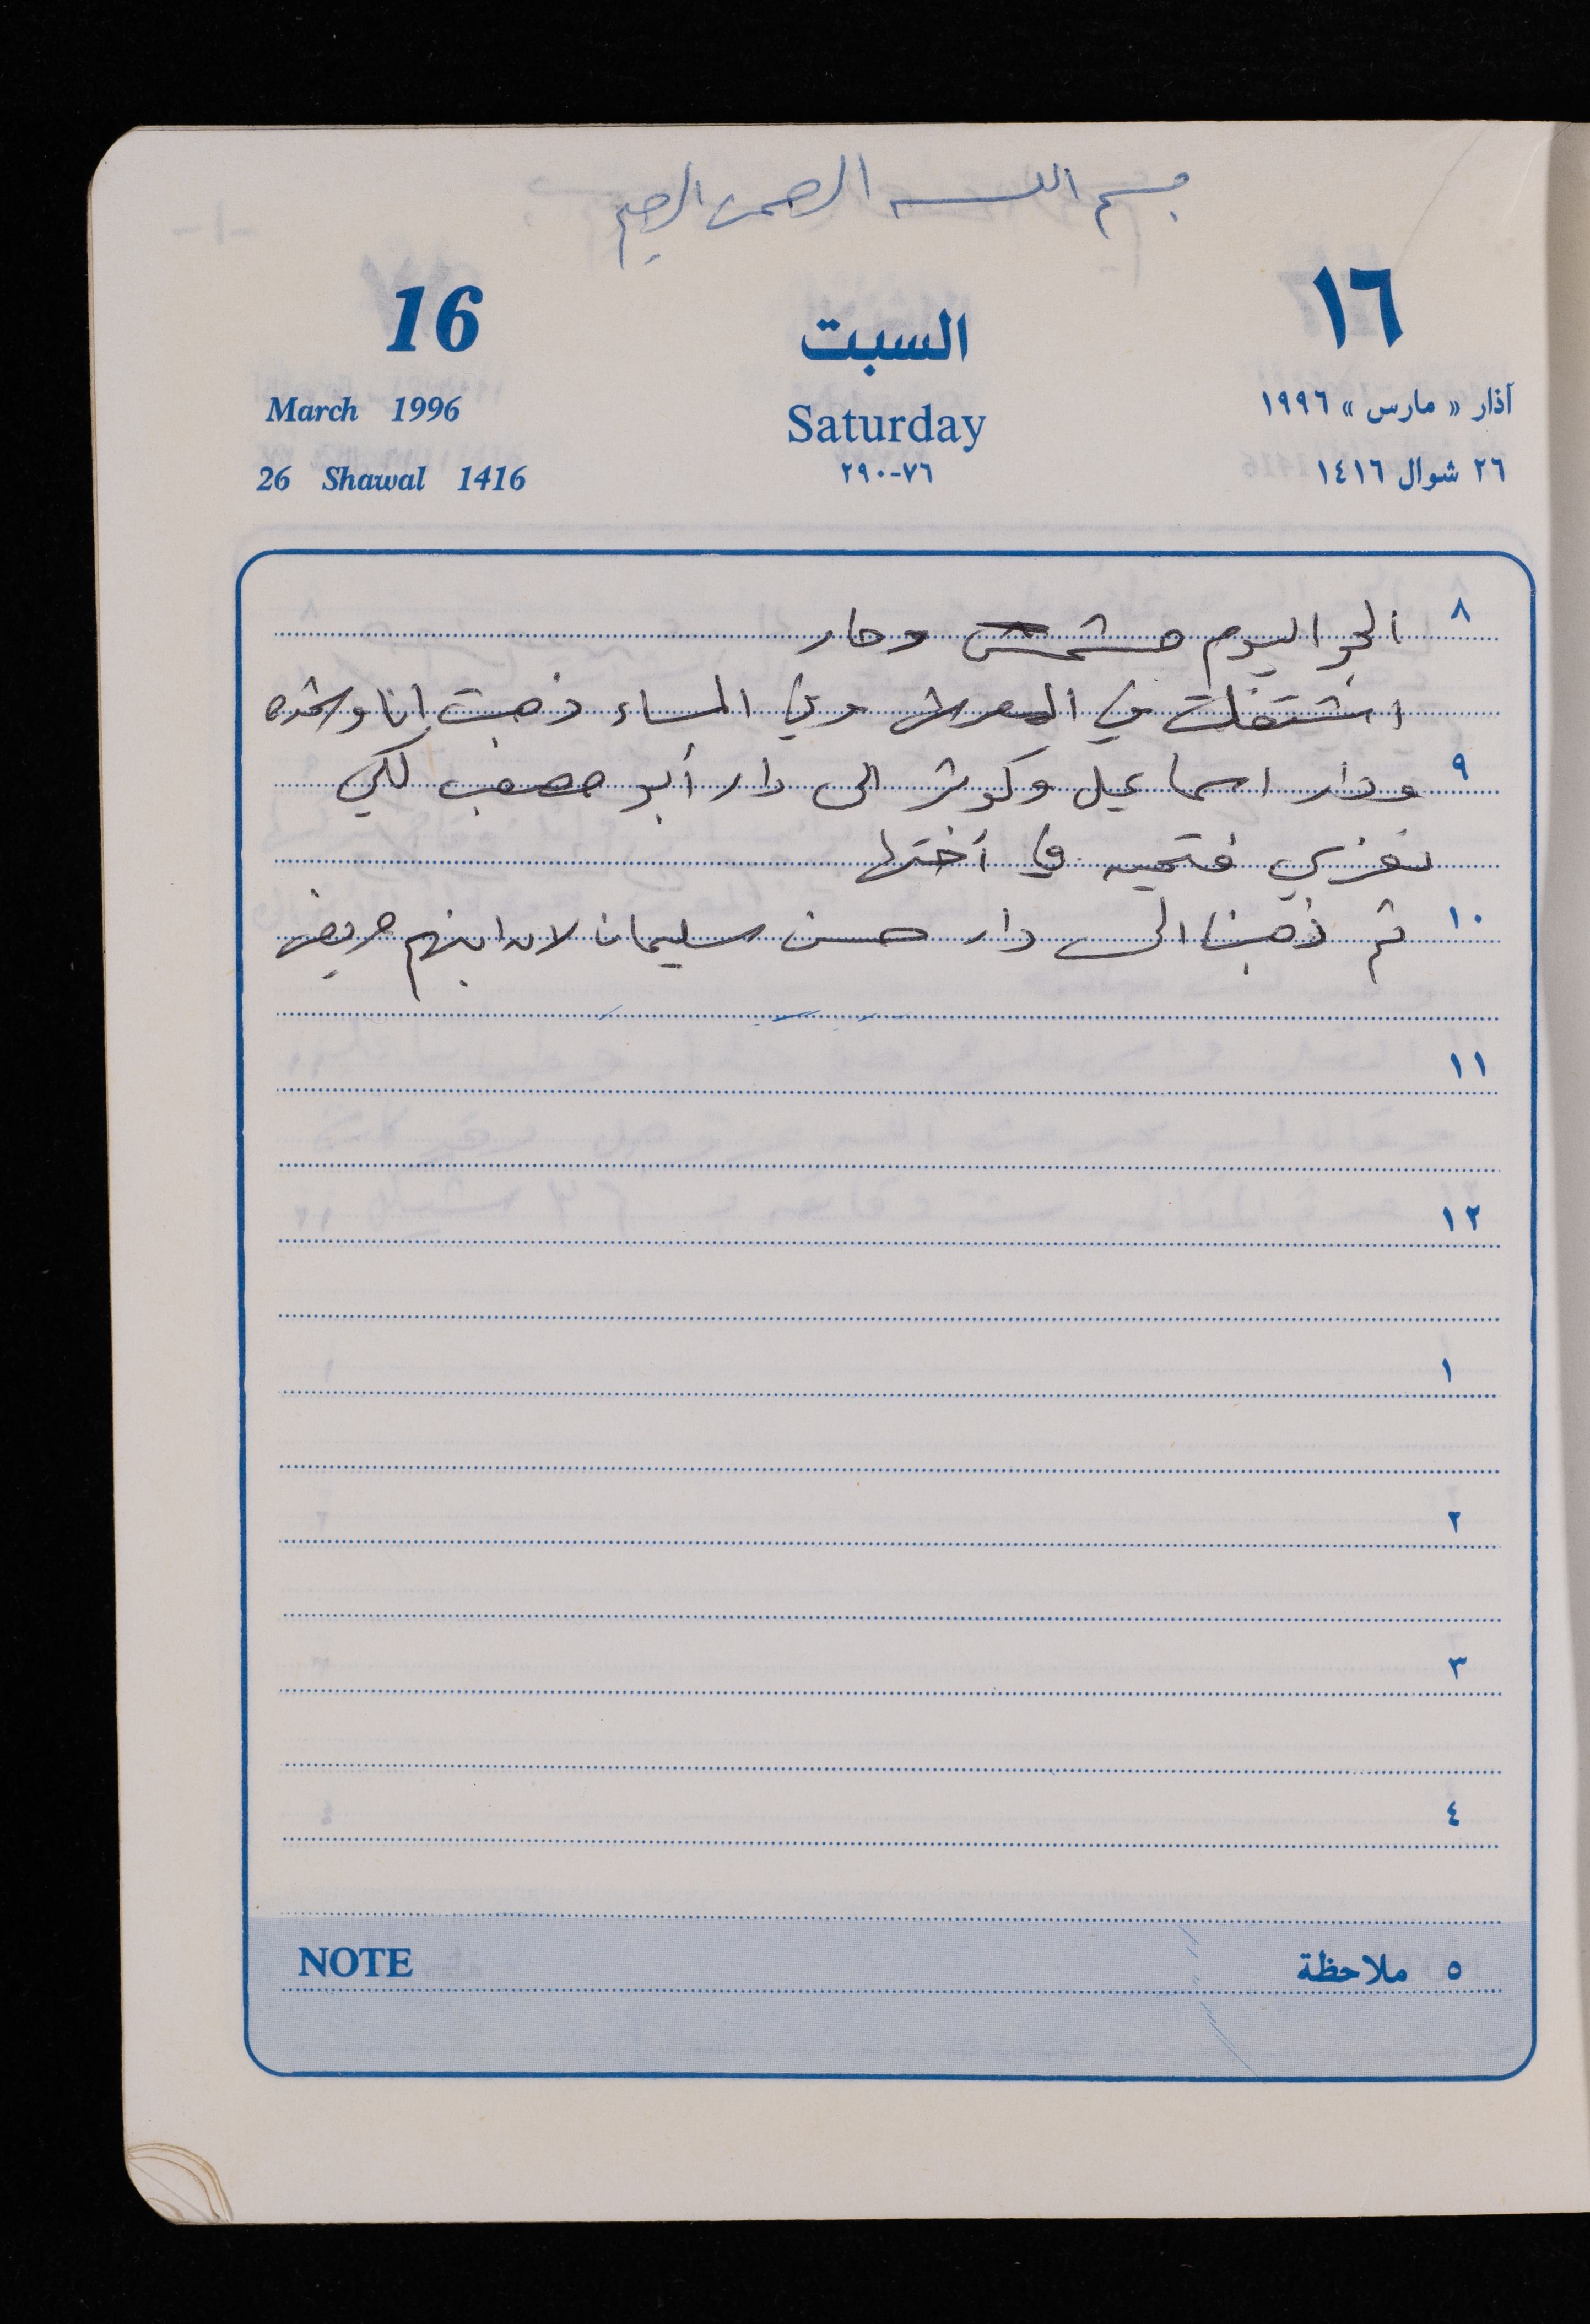 بسم الله الرحمن الرحيم
16
السبت
١٦
March 1996
Saturday
آذار « مارس » ١٩٩٦
26 Shawal 1416
٧٦-٢٩٠
٢٦ شوال ١٤١٦
٨ الجو اليوم مشمس وحار
اشتغلت في المعرش وفي المساء ذهبت انا
٩ ودار اسماعيل وكوثر الى دار أبو مصعب لكي
نعزي فتحيه في أختها
١٠ ثم ذهبنا الى دار حسن سليمان لان ابنهم مريض
١١
١٢
١
٢
٣
٤
NOTE
٥ ملاحظة